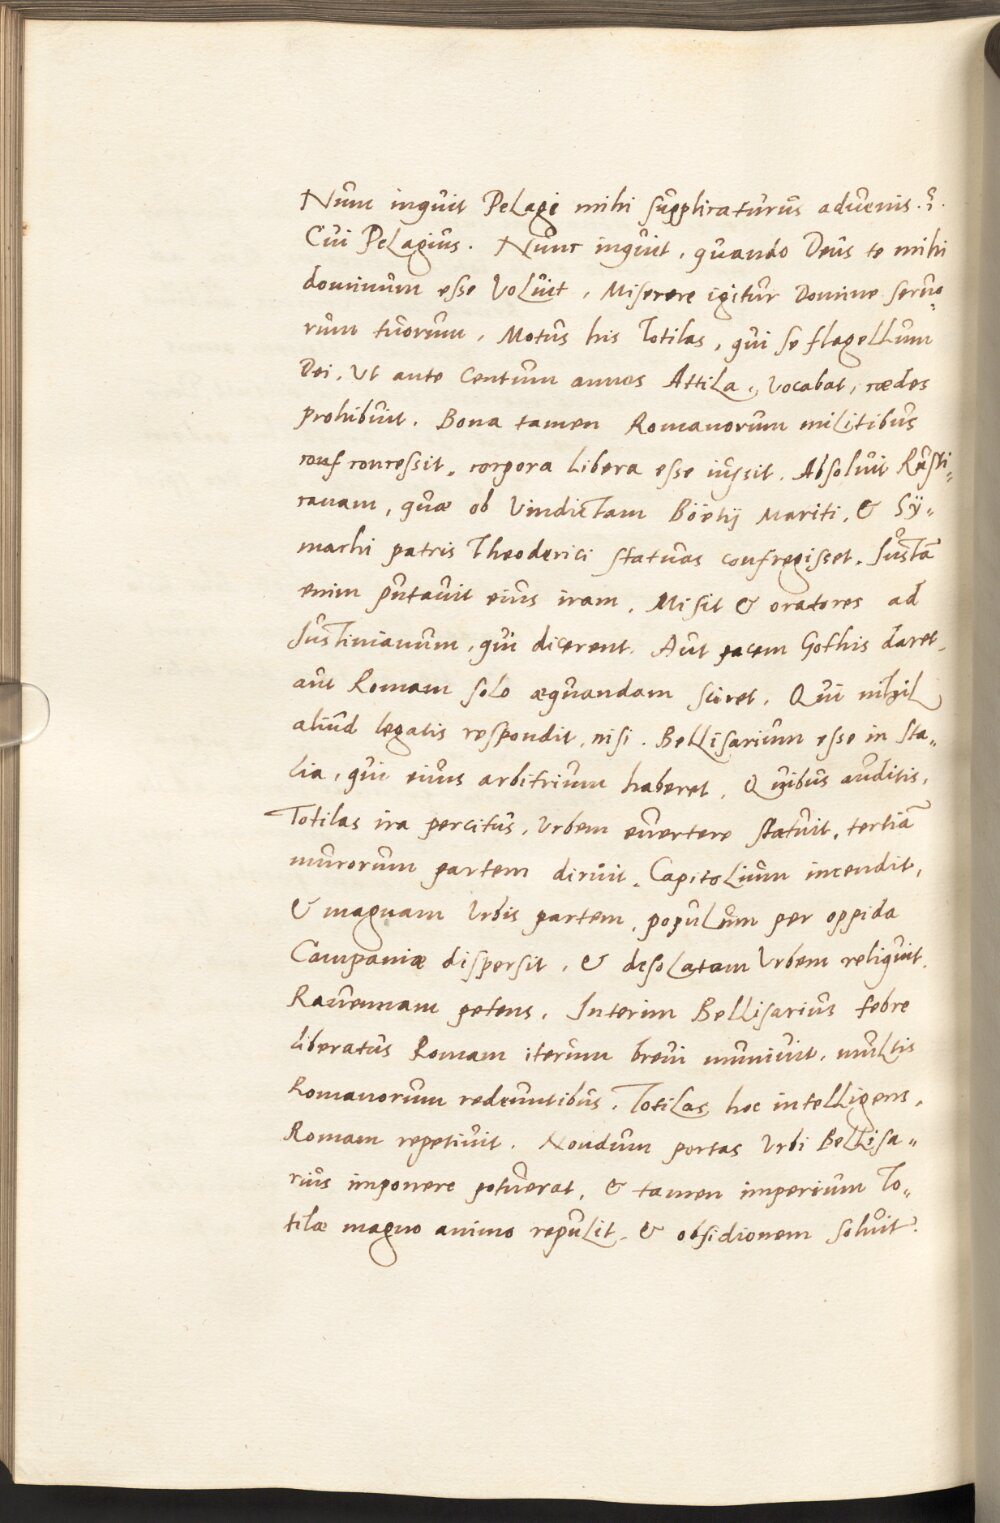 Num inquit Pelagi mihi supplicaturus advenis.?.
Cui Pelagius. Nunc inquit, quando Deus te mihi
dominum esse voluit, Miserere igitur Domine servo„
rum tuorum, Motus his Totilas, qui se flagellum
Dei, Ut ante Centum annos Attila, vocabat, cædes
prohibuit. Bona tamen Romanorum militibus
concessit, corpora libera esse iussit. Absolvit Rusti„
canam, quæ ob vindictam Böetij Mariti, & Sÿ„
machi patris Theoderici statuas confregisset. Justā
enim putavit eius iram. Misit & oratores ad
Justinianum, qui dicerent. Aut pacem Gothis daret,
aut Romam solo æquandam sciret. Qui nihil
aliud legatis respondit, nisi. Bellisarium esse in Ita„
lia, qui eius arbitrium haberet. Quibus auditis,
Totilas ira percitus, Urbem evertere statuit, tertiā
murorum partem diruit, Capitolium incendit,
& magnam Urbis partem, populum per oppida
Campaniæ dispersit, & desolatam Urbem reliquit.
Ravennam petens, Interim Bellisarius febre
liberatus Romam iterum brevi munivit, multis
Romanorum redeuntibus. Totilas hoc intelligens,
Romam repetivit. Nondum portas Urbi Bellisa„
rius imponere potuerat, & tamen imperium To„
tilæ magno animo repulit, & obsidionem solvit.